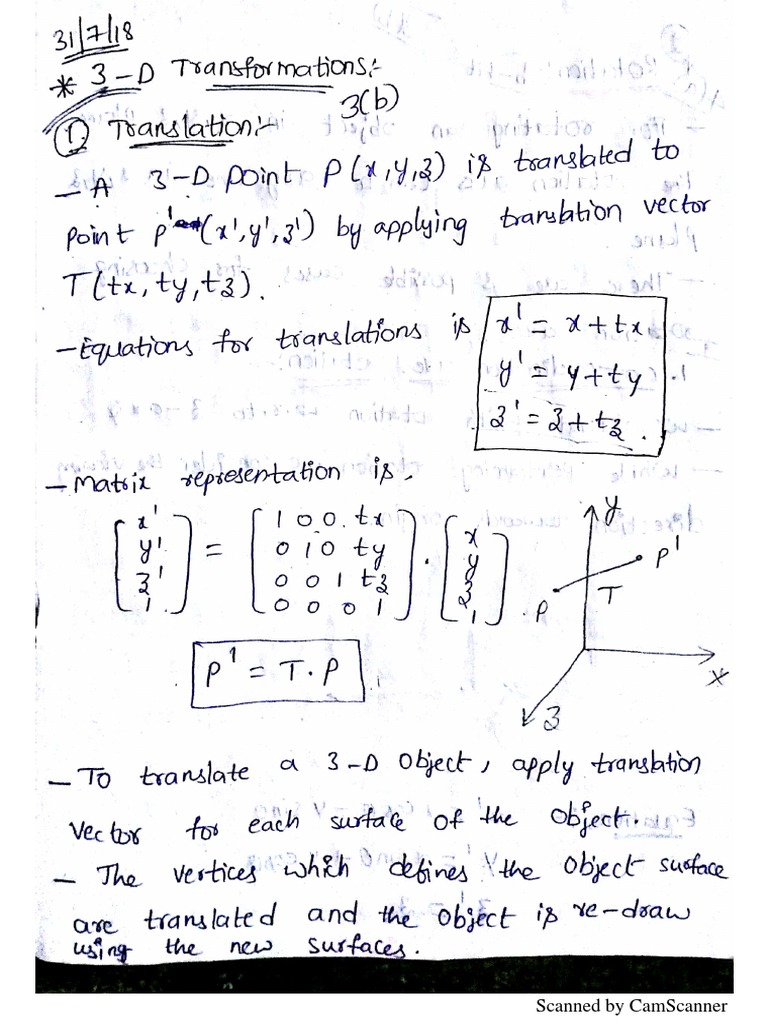 31/7/18
* 3-D Transformations:-
3(b)
① Translation:-
- A 3-D point P(x,y,z) is translated to
point p'(x',y',z') by applying translation vector
T(tx, ty, tz).
- Equations for translations is
x' = x + tx
y' = y + ty
z' = z + tz.
- Matrix representation is,
[x' y' z' 1] = [1 0 0 tx
0 1 0 ty
0 0 1 tz
0 0 0 1] . [x y z 1].
P' = T . P
y
P'
T
P
x
z
- To translate a 3-D object, apply translation
vector for each surface of the object.
- The vertices which defines the object surface
are translated and the object is re-draw
using the new surfaces.
Scanned by CamScanner